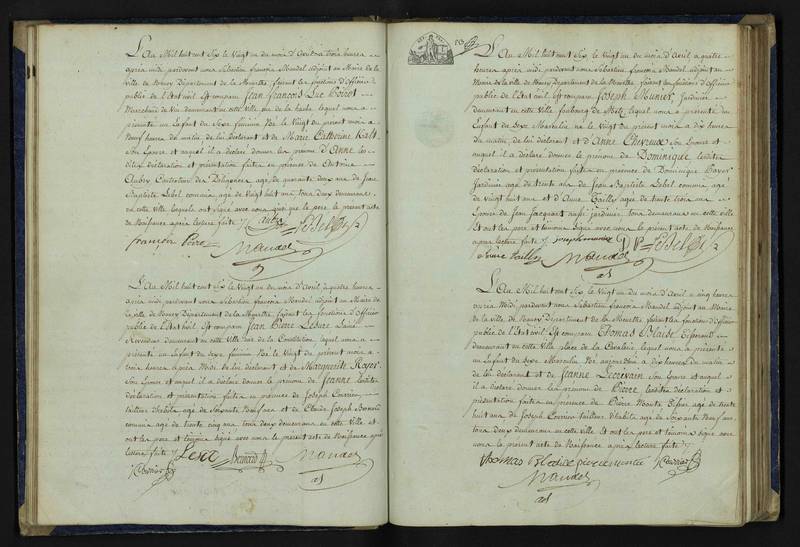 L'an Mil huit cent Six le Vingt un du mois d'Avril a trois heures
après midi pardevant nous Sébastien françois Mandel adjoint au Maire de la
Ville de Nancy Département de la Meurthe, faisant les fonctions d'Officier
public de l'Etat civil Est comparu Jean François Luc Poirot
Marchand de Vin demeurant en cette Ville rue de la hache lequel nous a
présenté un Enfant du Sexe féminin Né le Vingt du présent mois a
Neuf heures du matin de lui déclarant et de Marie Catherine
Son Epouse et auquel il a déclaré donner le prénom d'Anne les
dites déclaration et présentation faites en présence de
Aubry Contrôleur des Diligences agé de quarante deux ans de Jean
Baptiste Lebel commis agé de Vingt huit ans tous deux demeurans
en cette Ville lesquels ont signé avec nous ainsi que le père le présent acte
de Naissance après lecture faite
françois Poirot
Mandel
L'An Mil huit cent Six le Vingt un du mois d'Avril a quatre heures
après midi pardevant nous Sébastien françois Mandel adjoint au Maire de
la ville de Nancy Département de la Meurthe, faisant les fonctions d'Officier
public de l'Etat civil Est comparu Jean Pierre Lesure
Revendeur demeurant en cette Ville rue de la Constitution lequel nous a
présenté un Enfant du Sexe féminin Né le Vingt du présent mois a
trois heures après Midi de lui déclarant et de Marguerite Royer
Son Epouse et auquel il a déclaré donner le prénom de Jeanne lesdites
déclaration et présentation faites en présence de Joseph Couvrier
tailleur d'habits agé de Soixante Neuf ans et de Claude Joseph Bernard
commis agé de trente cinq ans tous deux demeurans en cette Ville et
ont les père et témoins signé avec nous le présent acte de Naissance après
lecture faite
Bernard
Mandel
L'An Mil huit cent Six le Vingt un du mois d'Avril a quatre
heures après midi pardevant nous Sébastien françois Mandel adjoint au
Maire de la Ville de Nancy Département de la Meurthe, faisant les fonctions d'Officier
public de l'Etat civil Est comparu Joseph Munier Jardinier
demeurant en cette Ville faubourg de Metz lequel nous a présenté un
Enfant du Sexe Masculin né le Vingt du présent mois a dix heures
du matin, de lui déclarant et d'Anne Chevreux Son Epouse et
auquel il a déclaré donner le prénom de Dominique lesdites
déclaration et présentation faites en présence de Dominique Bayer
Jardinier agé de trente ans de Jean Baptiste Lebel commis agé
de Vingt huit ans et d'Anne Tailly agée de trente trois ans
Epouse de Jean Jacquart aussi jardinier, tous demeurans en cette Ville
Et ont les père et témoins signé avec nous le présent acte de Naissance
après lecture faite joseph munier
Mandel
L'An Mil huit cent Six le Vingt un du mois d'Avril a cinq heures
après Midi, pardevant nous Sébastien françois Mandel adjoint au Maire
de la Ville de Nancy Département de la Meurthe faisant les fonctions d'Officier
public de l'Etat civil Est comparu Thomas Blaise
demeurant en cette Ville place de la Cavalerie lequel nous a présenté
un Enfant du Sexe Masculin Né aujourd'hui a dix heures du matin
de lui déclarant et de Jeanne Lecrivain Son Epouse et auquel
il a déclaré donner le prénom de Pierre lesdites déclaration et
présentation faites en présence de Pierre agé de trente
huit ans de Joseph Couvrier tailleur d'habits agé de Soixante Neuf ans,
tous deux demeurans en cette Ville et ont les père et témoins signé avec
nous le présent acte de Naissance après lecture faite
thomas Blaise
Mandel